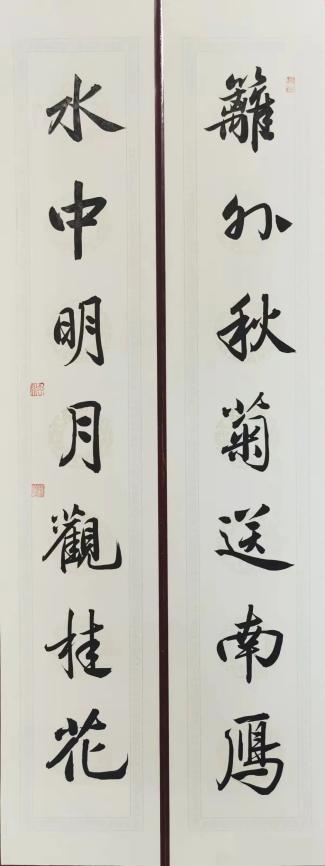 籬外秋菊送南鴈
水中明月觀桂花